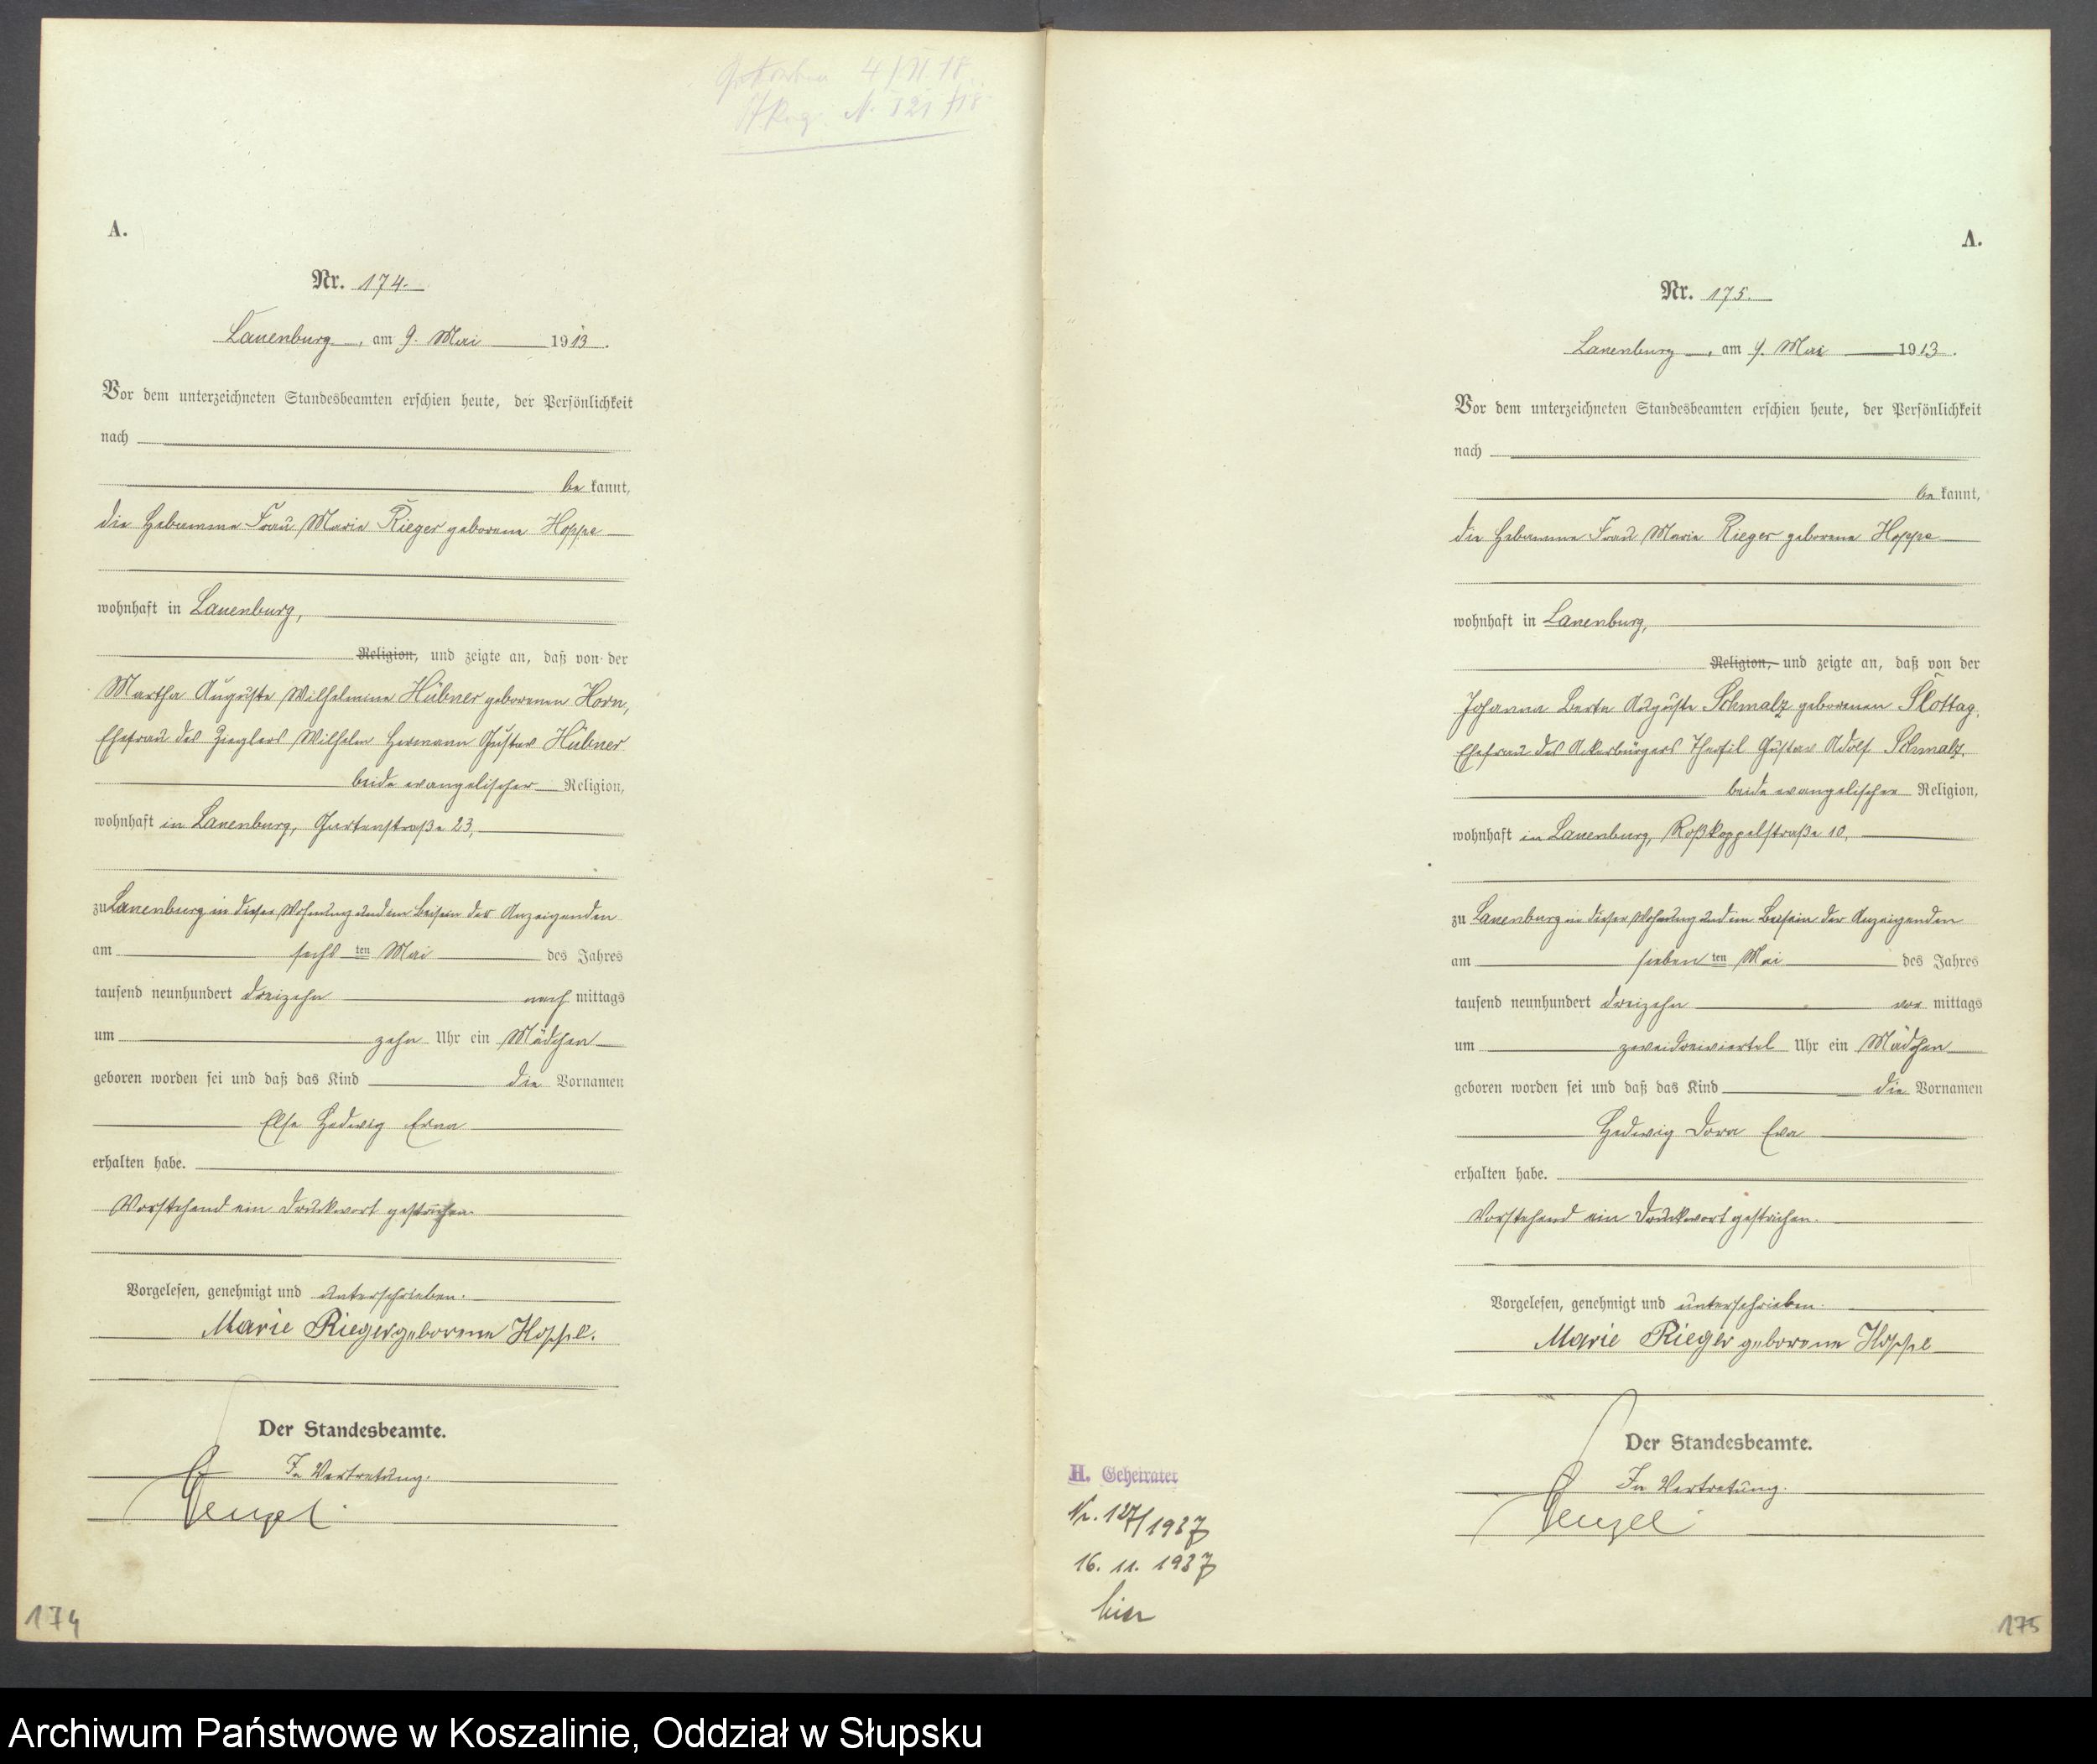 Gestorben 4/11.18.
St. Reg. N. 321/18
A.
Nr. 174.
Lauenburg, am 9. Mai 1913.
Vor dem unterzeichneten Standesbeamten erschien heute, der Persönlichkeit
nach
be kannt,
die Hebamme Frau Marie Rieger geborene Hoppe
wohnhaft in Lauenburg,
Religion, und zeigte an, daß von der
Martha Auguste Wilhelmine Hübner geborenen Horn,
Ehefrau des Zieglers Wilhelm Hermann Gustav Hübner
beide evangelischer Religion,
wohnhaft in Lauenburg, Gartenstraße 23,
zu Lauenburg in dieser Wohnung und im Beisein der Anzeigenden
am sechsten Mai des Jahres
tausend neunhundert dreizehn nach mittags
um zehn Uhr ein Mädchen
geboren worden sei und daß das Kind die Vornamen
Else Hedwig Erna
erhalten habe.
Vorstehend ein Druckwort gestrichen.
Vorgelesen, genehmigt und unterschrieben.
Marie Rieger geborene Hoppe.
Der Standesbeamte.
In Vertretung.
174
A.
Nr. 175.
Lauenburg, am 9. Mai 1913.
Vor dem unterzeichneten Standesbeamten erschien heute, der Persönlichkeit
nach
be kannt,
die Hebamme Frau Marie Rieger geborene Hoppe
wohnhaft in Lauenburg,
Religion, und zeigte an, daß von der
Johanna Berta Auguste Schmalz geborenen Slottag,
Ehefrau des Ackerbürgers Theofil Gustav Adolf Schmalz,
beide evangelischer Religion,
wohnhaft in Lauenburg, Roßkoppelstraße 10,
zu Lauenburg in dieser Wohnung und im Beisein der Anzeigenden
am siebenten Mai des Jahres
tausend neunhundert dreizehn vor mittags
um zweidreiviertel Uhr ein Mädchen
geboren worden sei und daß das Kind die Vornamen
Hedwig Dora Eva
erhalten habe.
Vorstehend ein Druckwort gestrichen.
Vorgelesen, genehmigt und unterschrieben.
Marie Rieger geborene Hoppe
Der Standesbeamte.
In Vertretung.
H. Geheiratet
Nr. 127/1937
16. 11. 1937
hier
175
Archiwum Państwowe w Koszalinie, Oddział w Słupsku